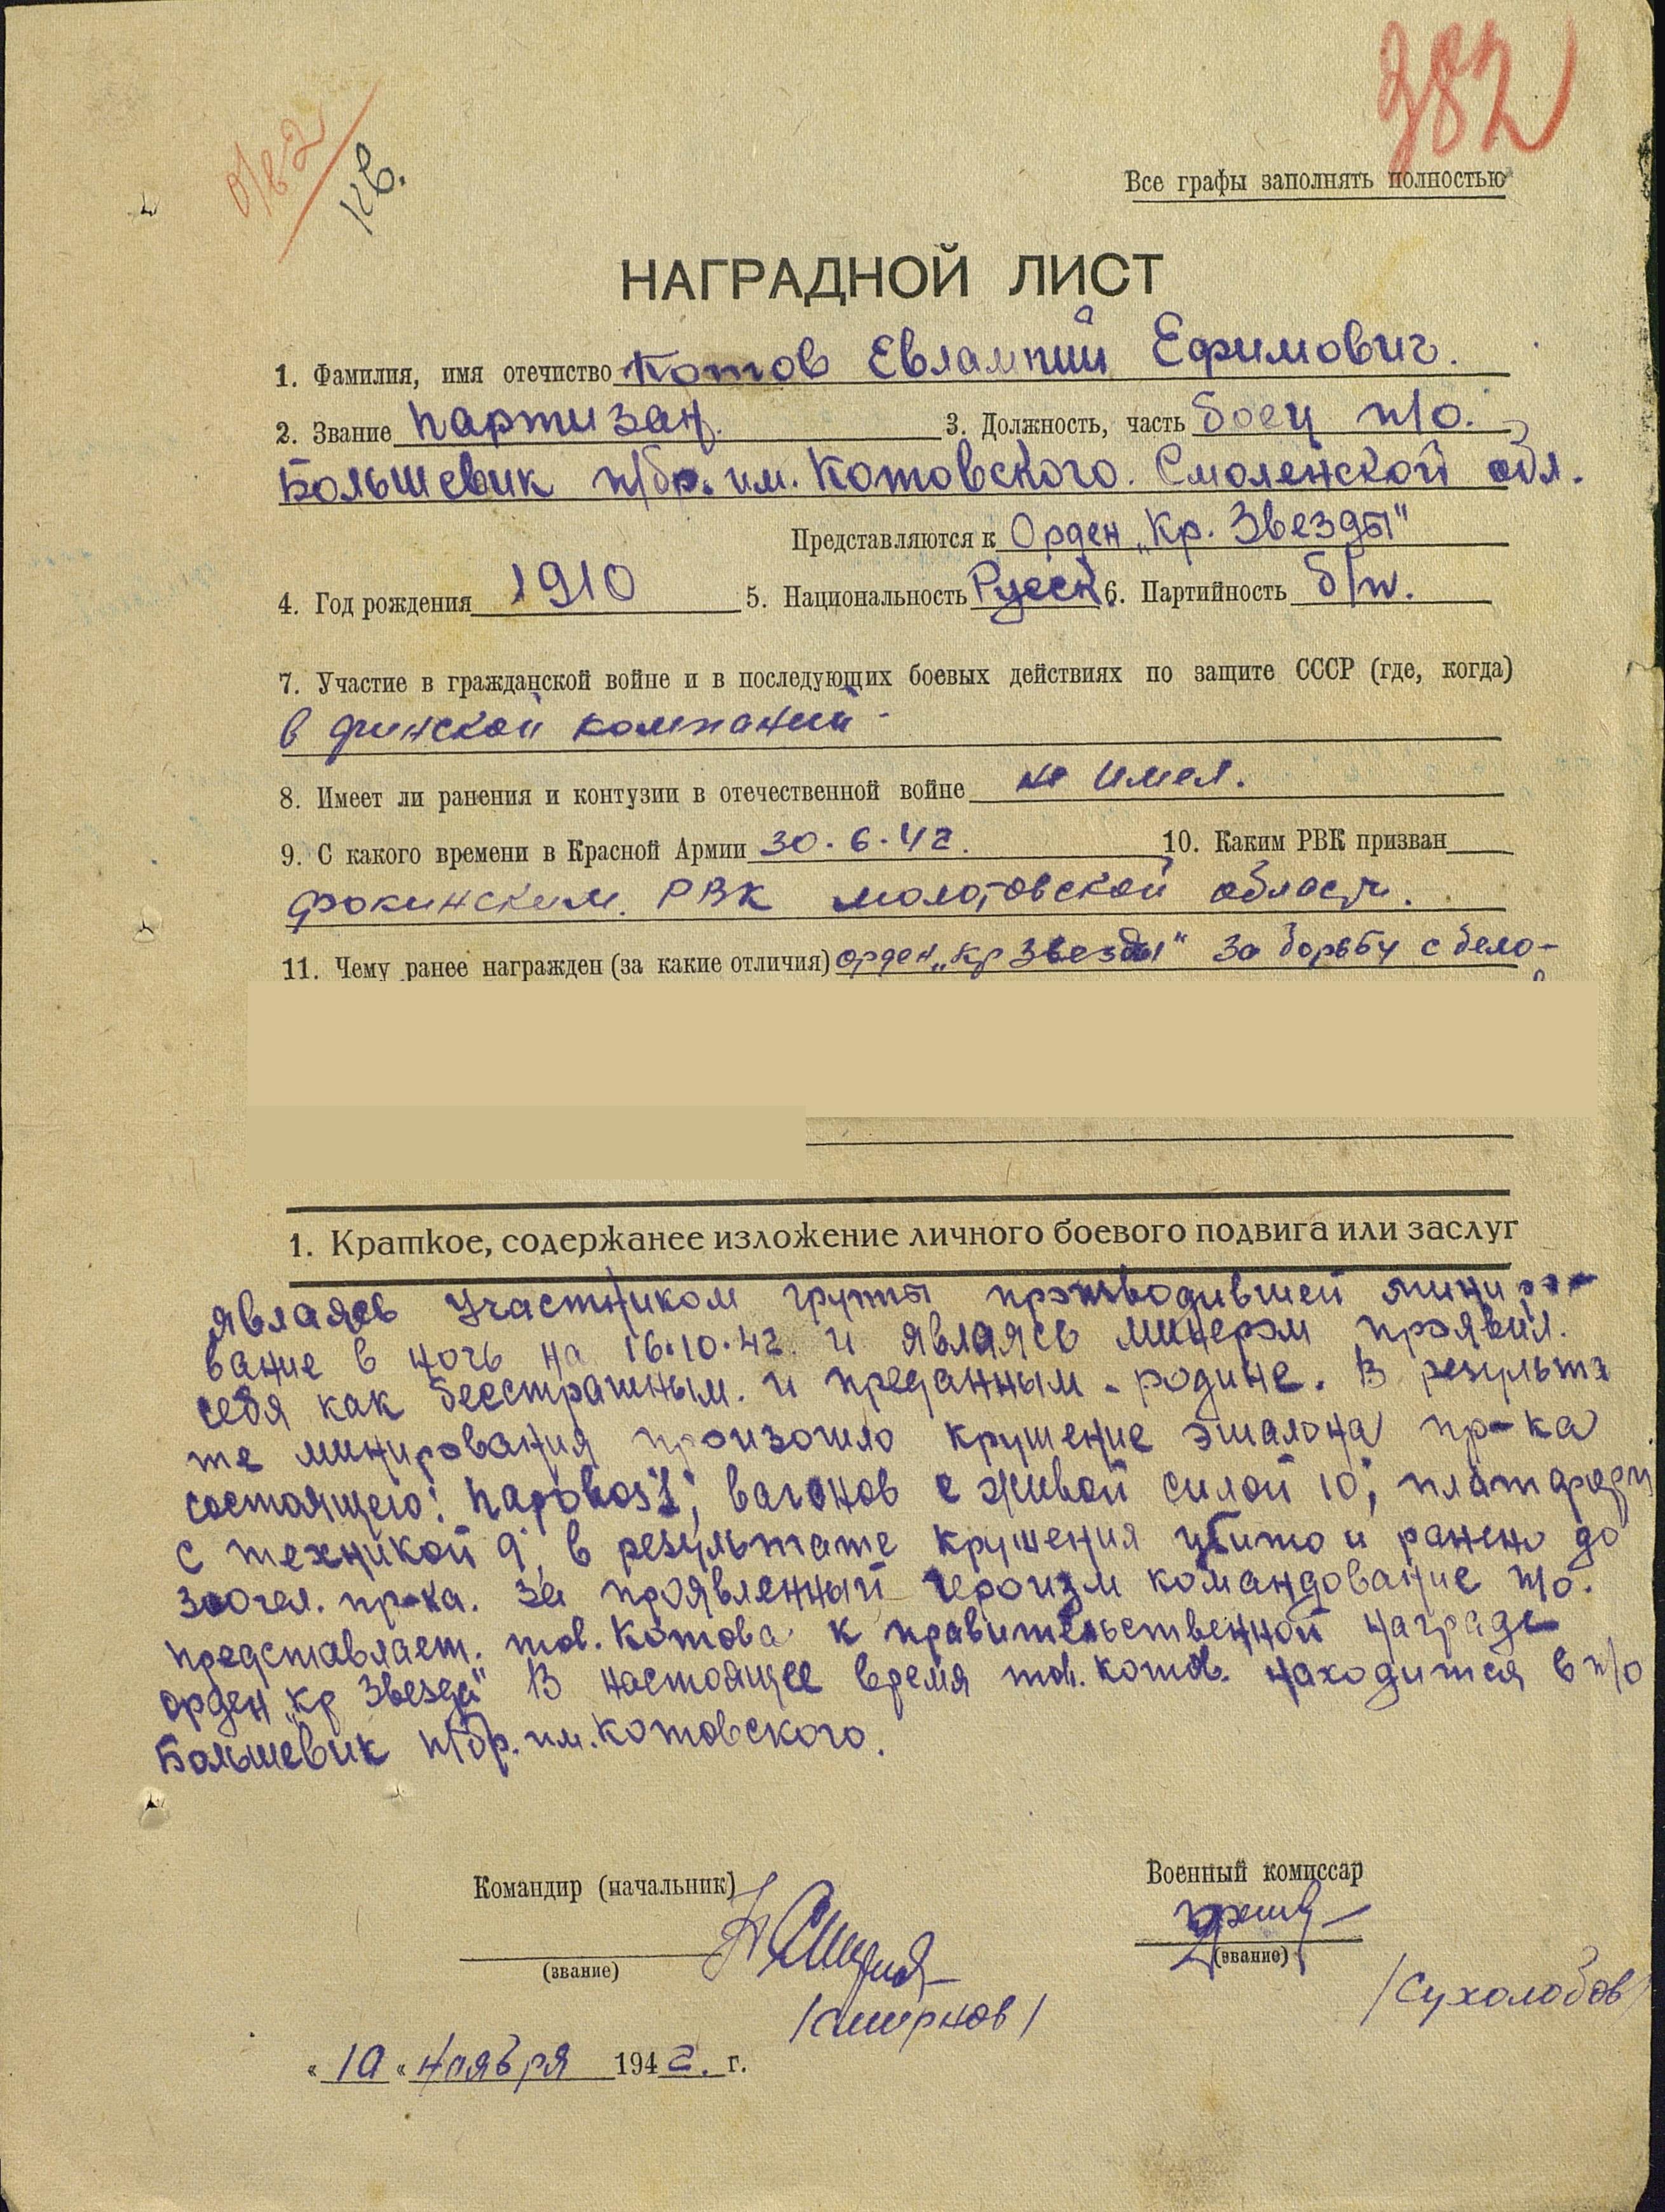 382
КВ.
Все графы заполнять полностью
НАГРАДНОЙ ЛИСТ
1. Фамилия, имя отечиство Котов Евлампий Ефимович.
2. Звание партизан. 3. Должность, часть боец п/о.
Большевик п/бр. им. Котовского. Смоленской обл.
Представляются к Орден „Кр. Звезды"
4. Год рождения 1910 5. Национальность Русск. 6. Партийность б/п.
7. Участие в гражданской войне и в последующих боевых действиях по защите СССР (где, когда)
в финской компаний
8. Имеет ли ранения и контузии в отечественной войне не имел.
9. С какого времени в Красной Армии 30.6.42. 10. Каким РВК призван
Фокинским. РВК молотовской области.
11. Чему ранее награжден (за какие отличия) орден „Кр Звезды" за борьбу с бело-
1. Краткое, содержанее изложение личного боевого подвига или заслуг
являясь участником групы производившей миниро-
вание в ночь на 16.10.42 и являясь минером проявил.
себя как бесстрашным. и преданным родине. В результа
те минирования произошло крушение эшалона пр-ка
состоящего: паровоз 1; вагонов с живой силой 10; платформ
с техникой 9. в результате крушения убито и ранено до
300 чел. пр-ка. За проявленный героизм командование п/о.
представляет. тов. Котова к правительственной награде
орден „Кр Звезда" В настоящее время тов. Котов. находится в п/о
Большевик п/бр. им. Котовского.
Командир (начальник)
Военный комиссар
(звание)
(звание)
/Смирнов/
/Сухолобов/
« 10 « ноября 1942. г.